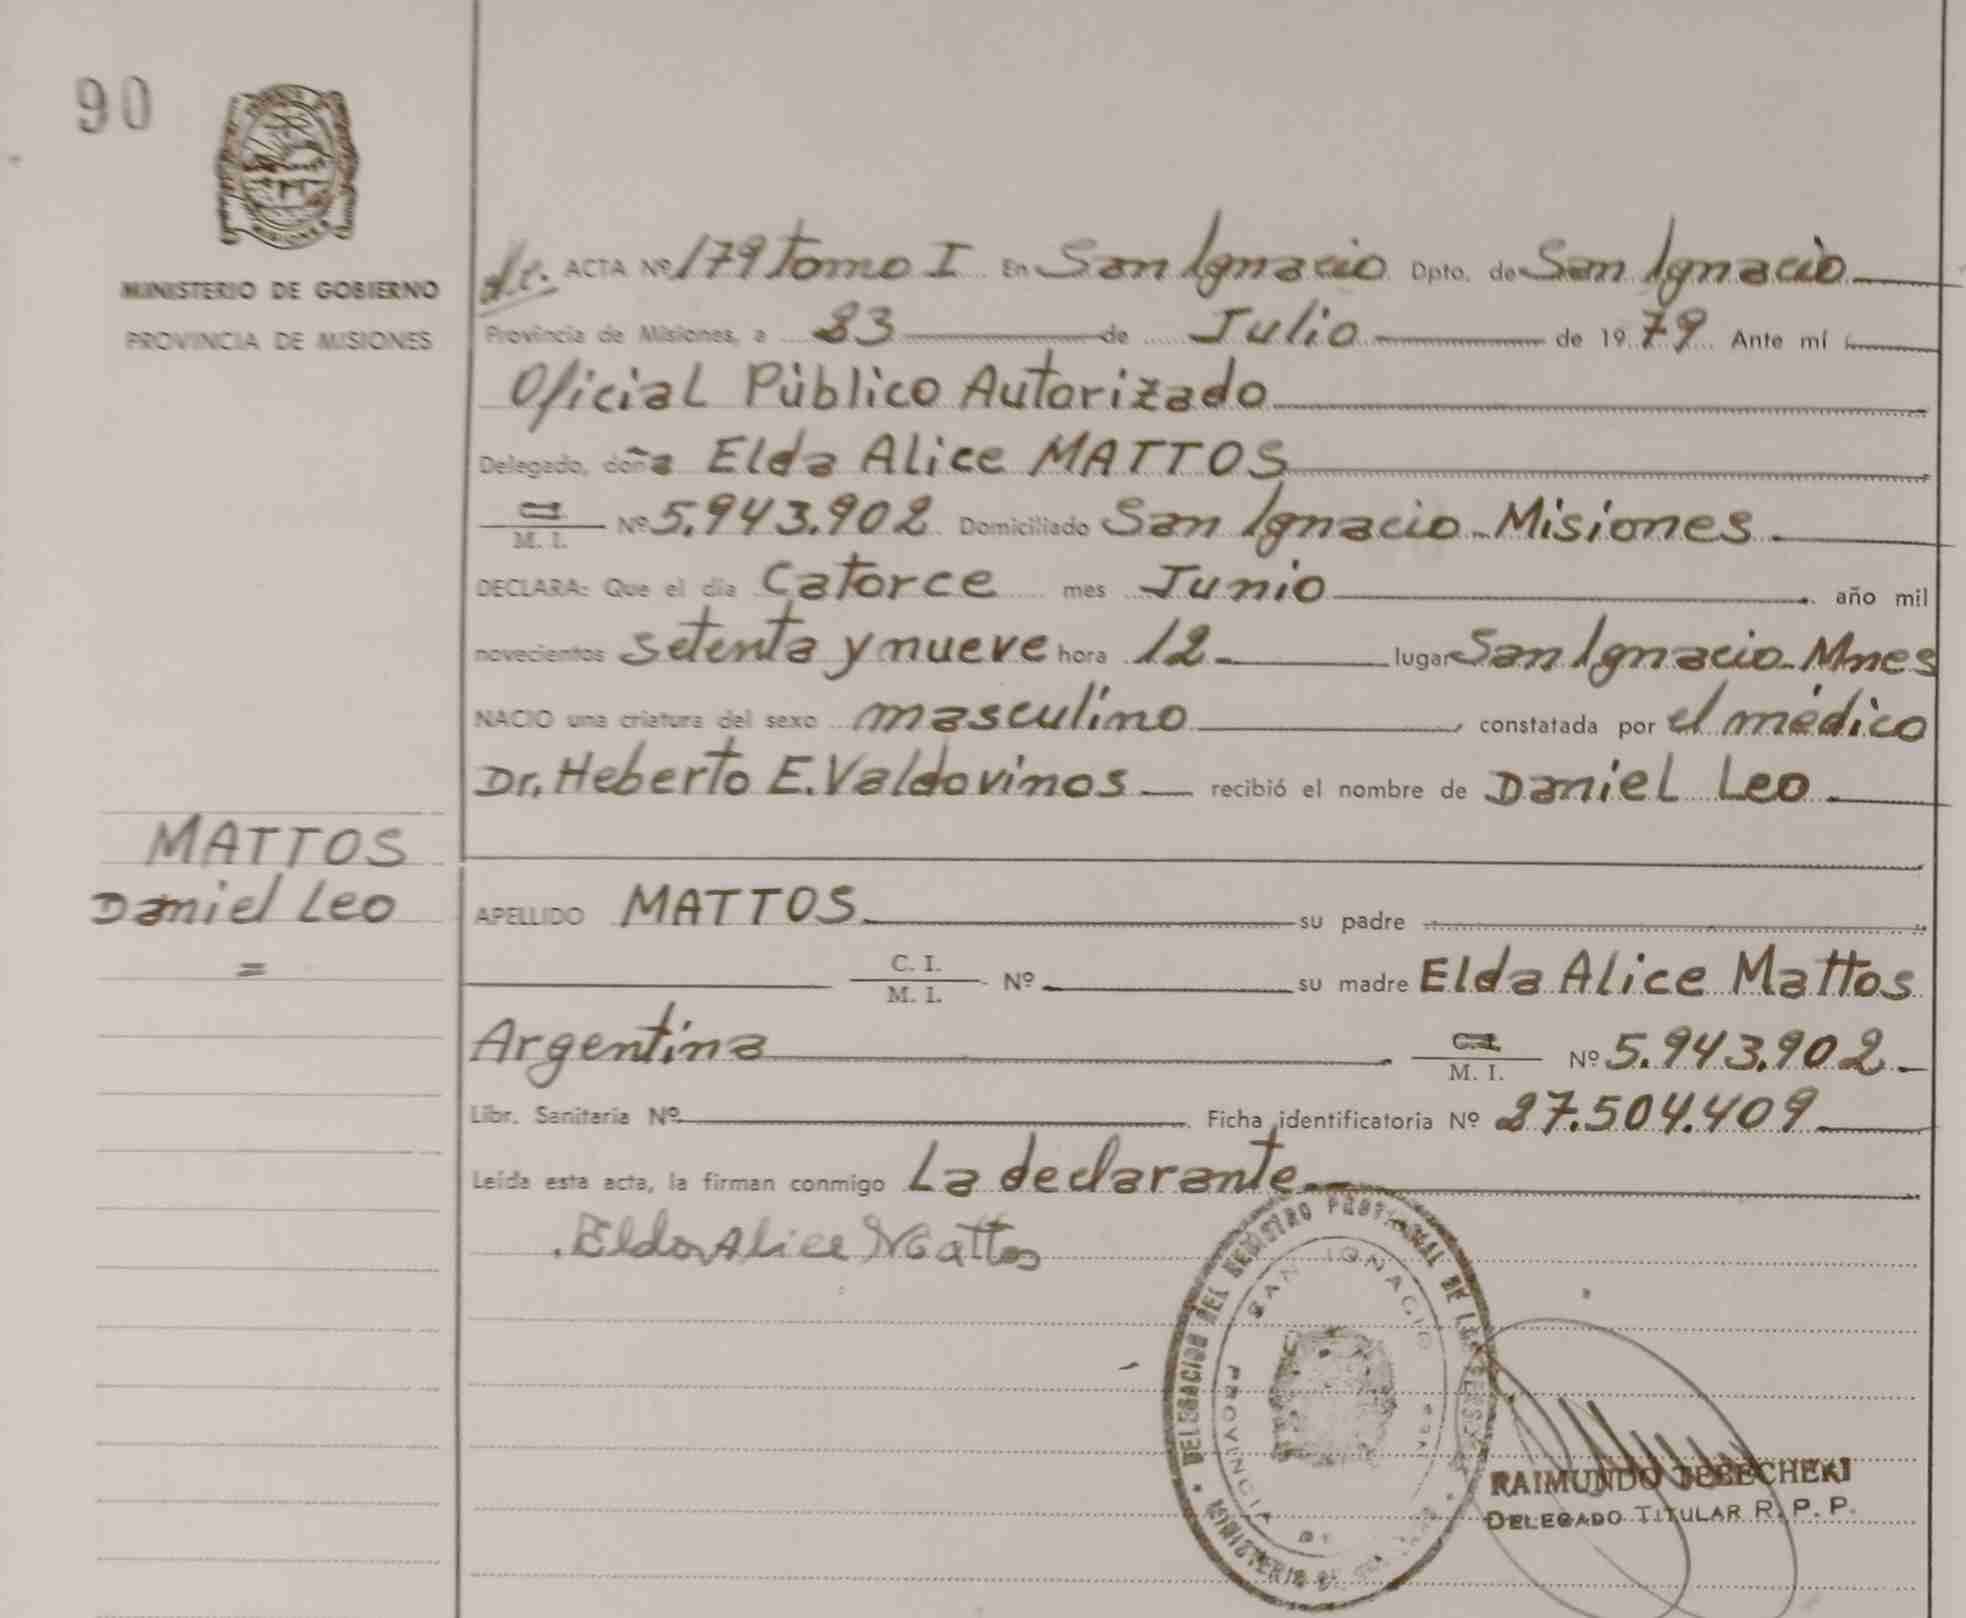 90
MISIONES
MINISTERIO DE GOBIERNO
PROVINCIA DE MISIONES
ACTA Nº 179 Tomo I En San Ignacio Dpto. de San Ignacio
Provincia de Misiones, a 23 de Julio de 1979 Ante mí
Oficial Público Autorizado
Delegado, doña Elda Alice MATTOS
M. I. Nº 5.943.902 Domiciliado San Ignacio - Misiones
DECLARA: Que el día Catorce mes Junio año mil
novecientos setenta y nueve hora 12 lugar San Ignacio - Mnes
NACIO una criatura del sexo masculino, constatada por el médico
Dr. Heberto E. Valdovinos recibió el nombre de Daniel Leo
MATTOS
Daniel Leo
=
APELLIDO MATTOS su padre
C. I.
M. I. Nº su madre Elda Alice Mattos
Argentina C. I. M. I. Nº 5.943.902
Libr. Sanitaria Nº Ficha identificatoria Nº 27.504.409
Leída esta acta, la firman conmigo La declarante
Elda Alice Mattos
DELEGACION DEL REGISTRO PROVINCIAL DE LAS PERSONAS
SAN IGNACIO
PROVINCIA DE
MINISTERIO DE
RAIMUNDO
DELEGADO TITULAR R. P. P.